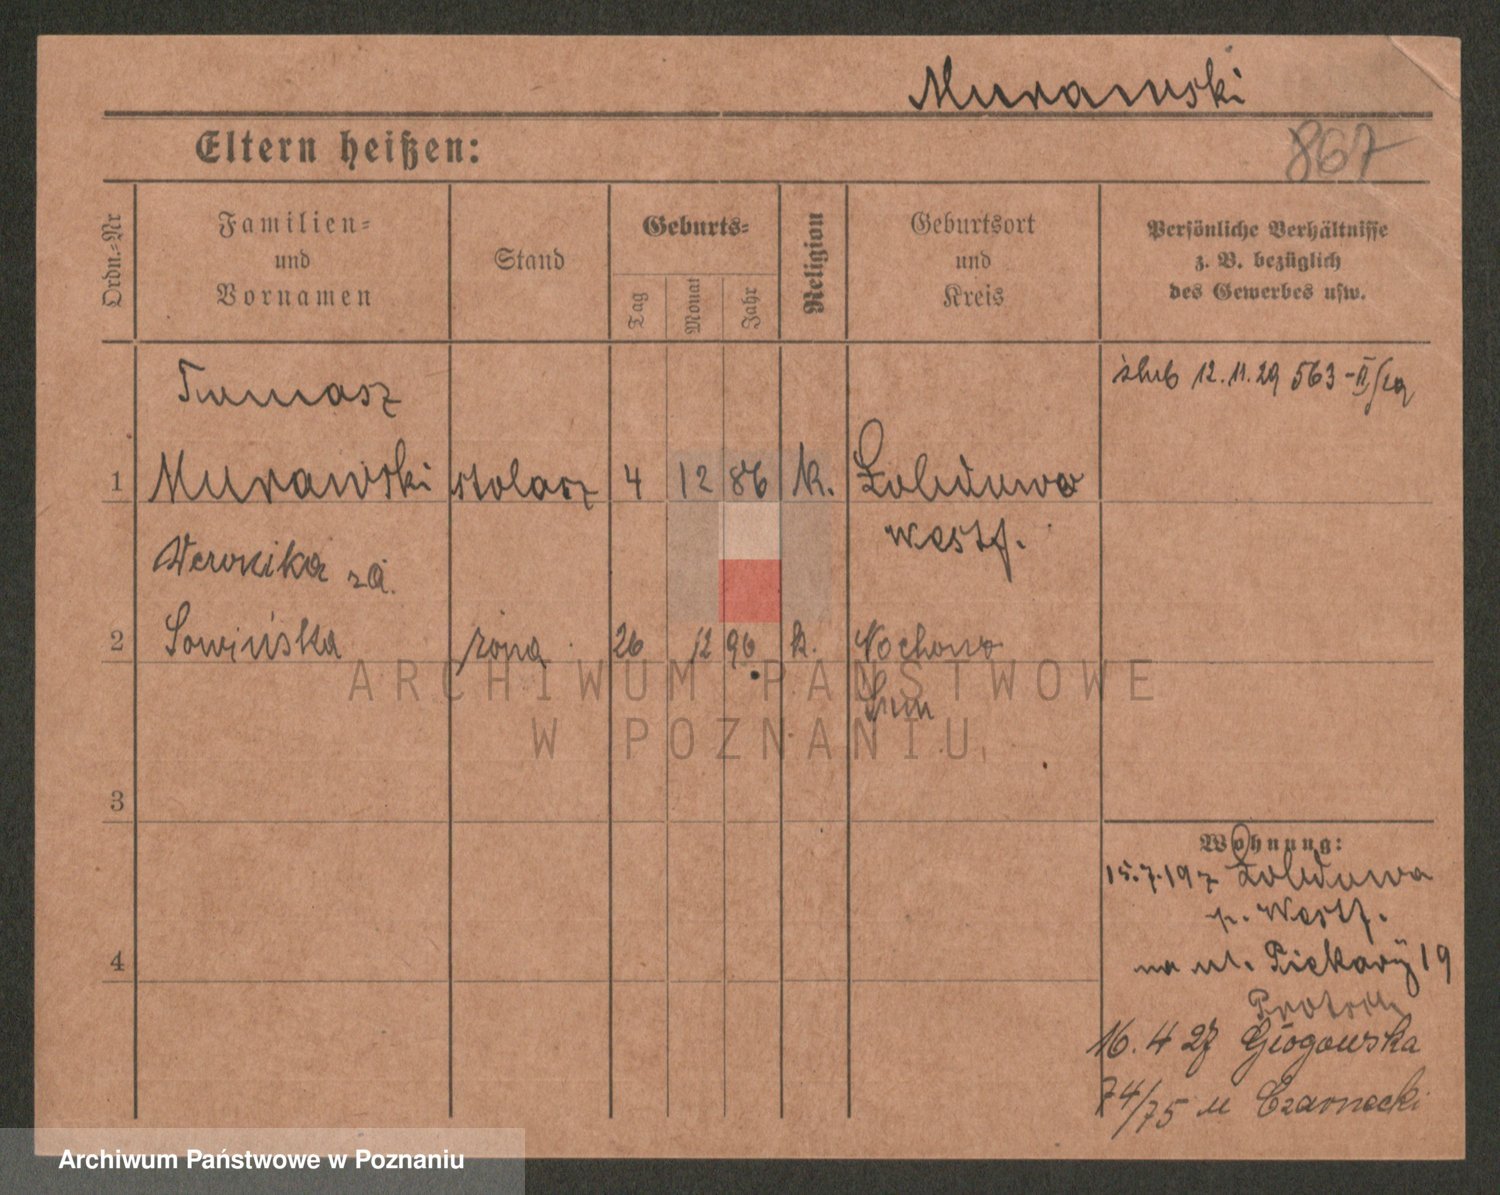 Murawski
867
Eltern heißen:
Ordn.-Nr
Familien-
und
Vornamen
Stand
Geburts-
Tag
Monat
Jahr
Religion
Geburtsort
und
Kreis
Persönliche Verhältnisse
z. B. bezüglich
des Gewerbes usw.
Tomasz
ślub 12.11.29 563-II
1 Murawski stolarz 4 12 86 k.
Westf.
Weronika za.
2 Sowińska żona 26 12 96 k. Nochowo
Śrem
ARCHIWUM PAŃSTWOWE
W POZNANIU
3
Wohnung:
15.7.19
p. Westf.
4
na ul. Piekary 19
16.4 27 Głogowska
74/75 u Czarnecki
Archiwum Państwowe w Poznaniu